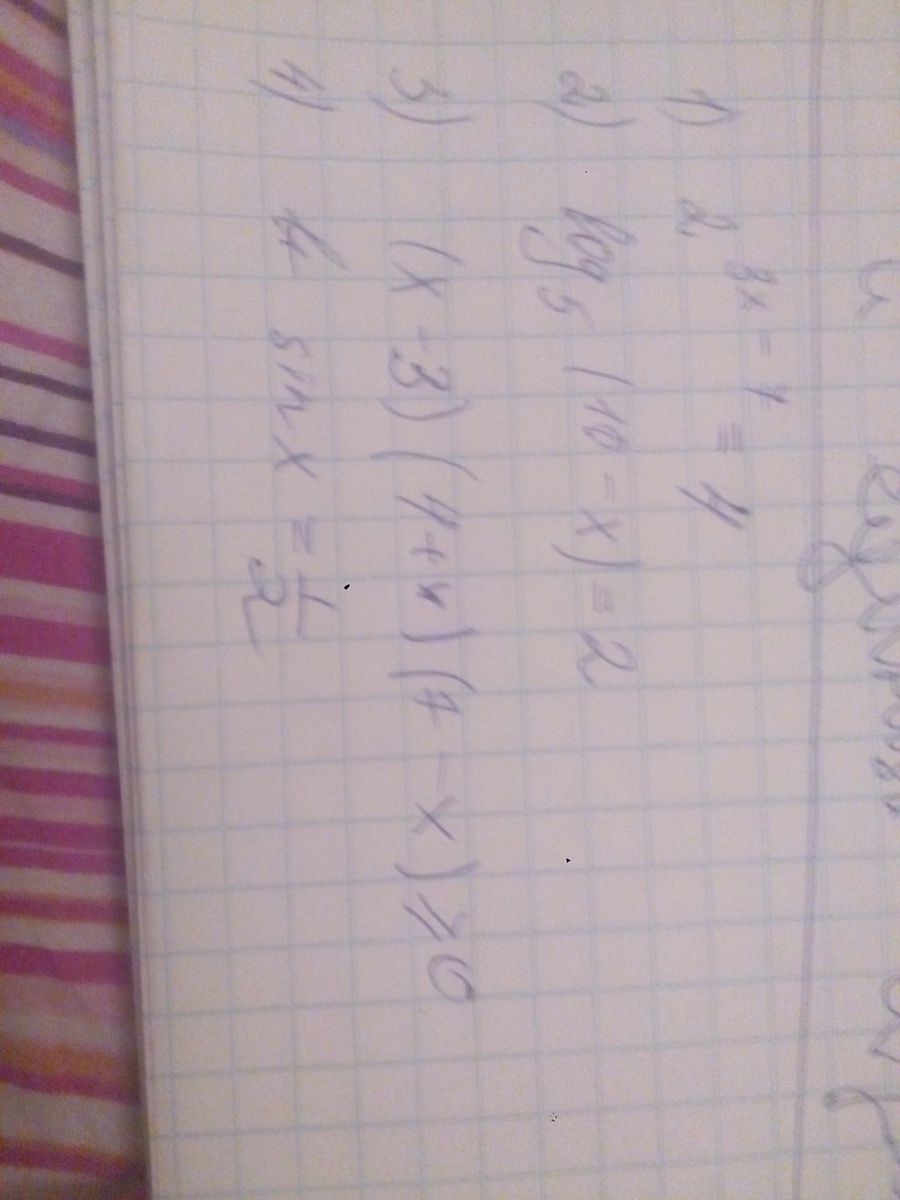 1) 2^(8x-1) = 4
2) log₅ (10 - x) = 2
3) (x - 3) (4 + x) (7 - x) ≥ 0
4) sin x = 1/2